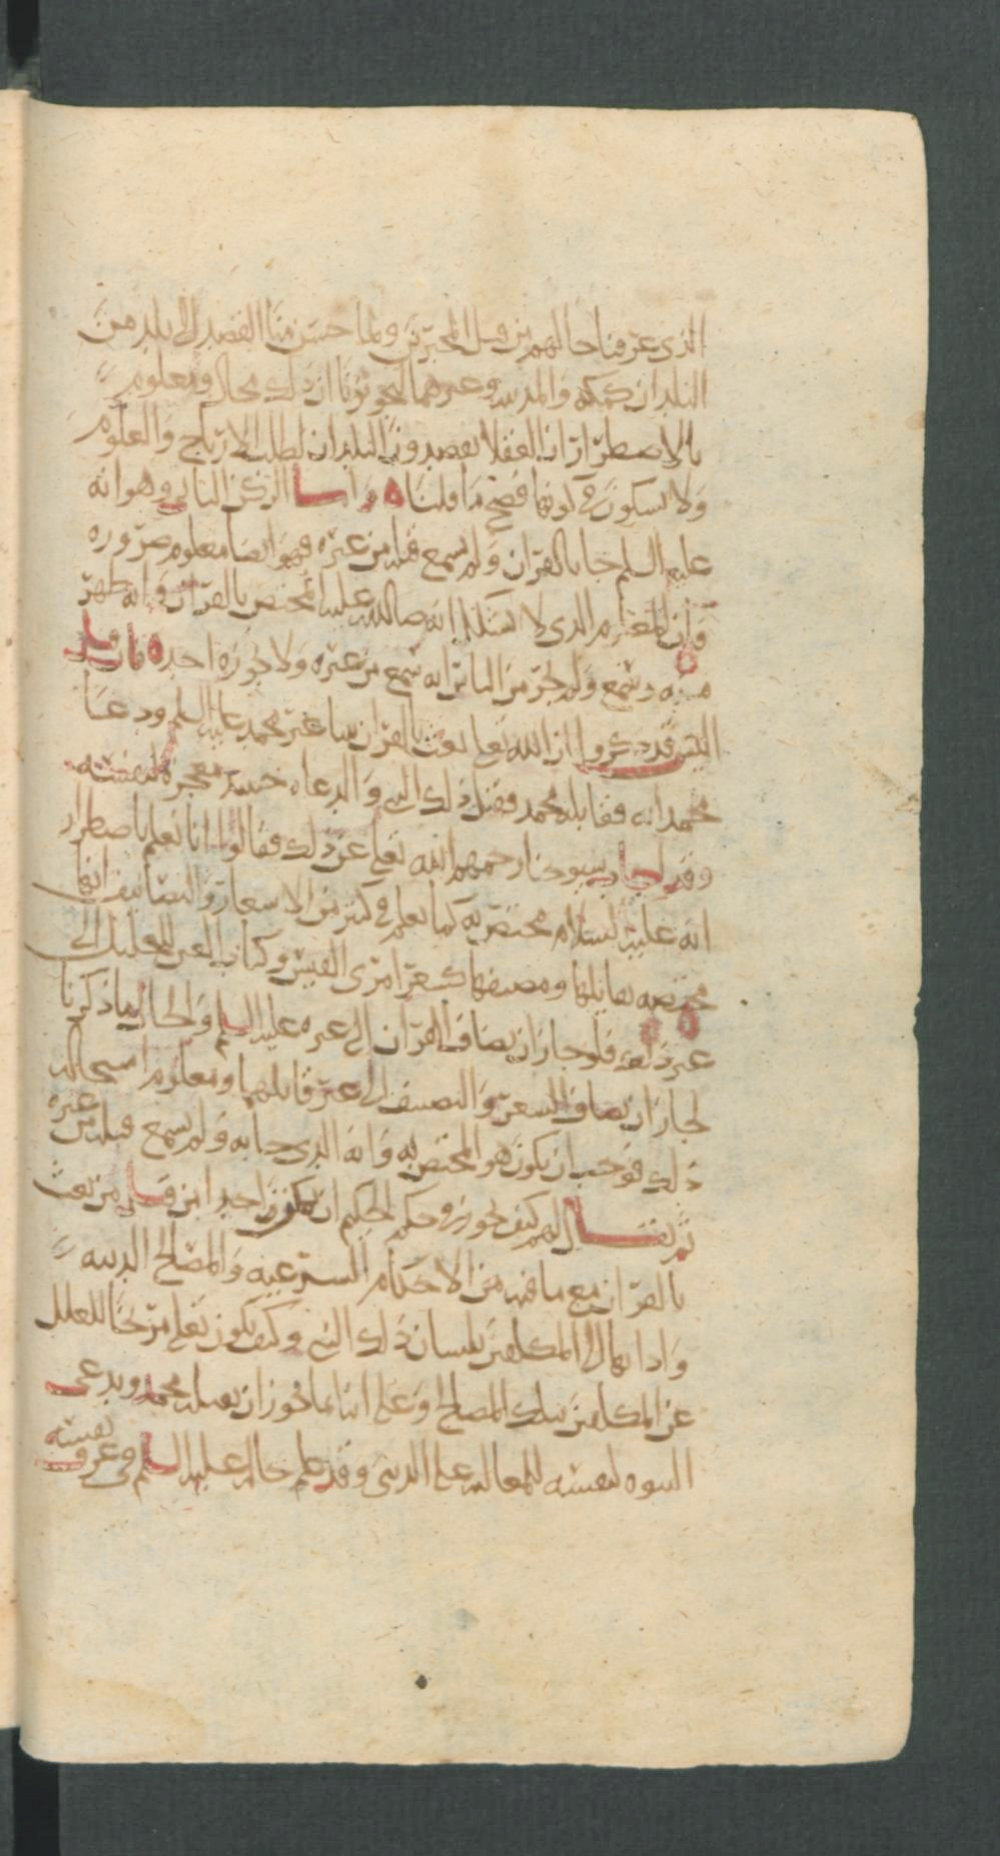 الذي عرفنا حالهم من قبل المخبرين ولما حسن منا القصد الى بلد من
البلدان كمكه والمدينه وغيرهما لتجويزنا ان ذلك محال ومعلوم
بالاضطرار ان العقلا يقصدون البلدان لطلب الارباح والعلوم
ولا يشكون في كونها فصح ما قلناه واما الركن الثاني وهو انه
عليه السلم جا بالقران ولم يسمع قبله من غيره فهو ايضا معلوم ضروره
وان المعلوم الذي لا شك انه صلى الله عليه المختص بالقران وانه ظهر
منه وسمع ولم يخبر من الناس انه سمع من غيره ولا جوزه احده فان قيل
اليس قد ذكروا ان الله تعلى بعث بالقران نبيا غير محمد عليه السلم ودعا
محمدا اليه فقابله محمد فقتل ذلك النبي وادعاه معجزة لنفسه
وقد اجاب شيوخنا رحمهم الله تعلى عن ذلك فقالوا انا نعلم باضطرار
انه عليه السلام مختص به كما نعلم في كثير من الاشعار والتصانيف انها
مختصه بقائلها ومصنفها كشعر امرئ القيس وكتاب العين للخليل الى
غير ذلك فلو جاز ان يضاف القران الى غيره عليه السلم والحال ما ذكرنا
لجاز ان يضاف الشعر والتصنيف الى غير قائلهما ومعلوم استحاله
ذلك فوجب ان يكون هو المختص به وانه الذي جا به ولم يسمع قبله من غيره
ثم يقال لهم كيف يجوز في حكم الحكيم ان يمكن احدا من قتل من بعث
بالقران مع ما فيه من الاحكام الشرعيه والمصالح الدينيه
وادا بها الى المكلفين بلسان ذلك النبي وكيف يكون تعلى مزيحا للعلل
عن المكلفين بتلك المصالح وعلى انا انما نجوز ان يقتله محمد ويدعي
النبوه لنفسه للمغالبه على الدنيا وقد علم حاله عليه السلم في عزوف نفسه